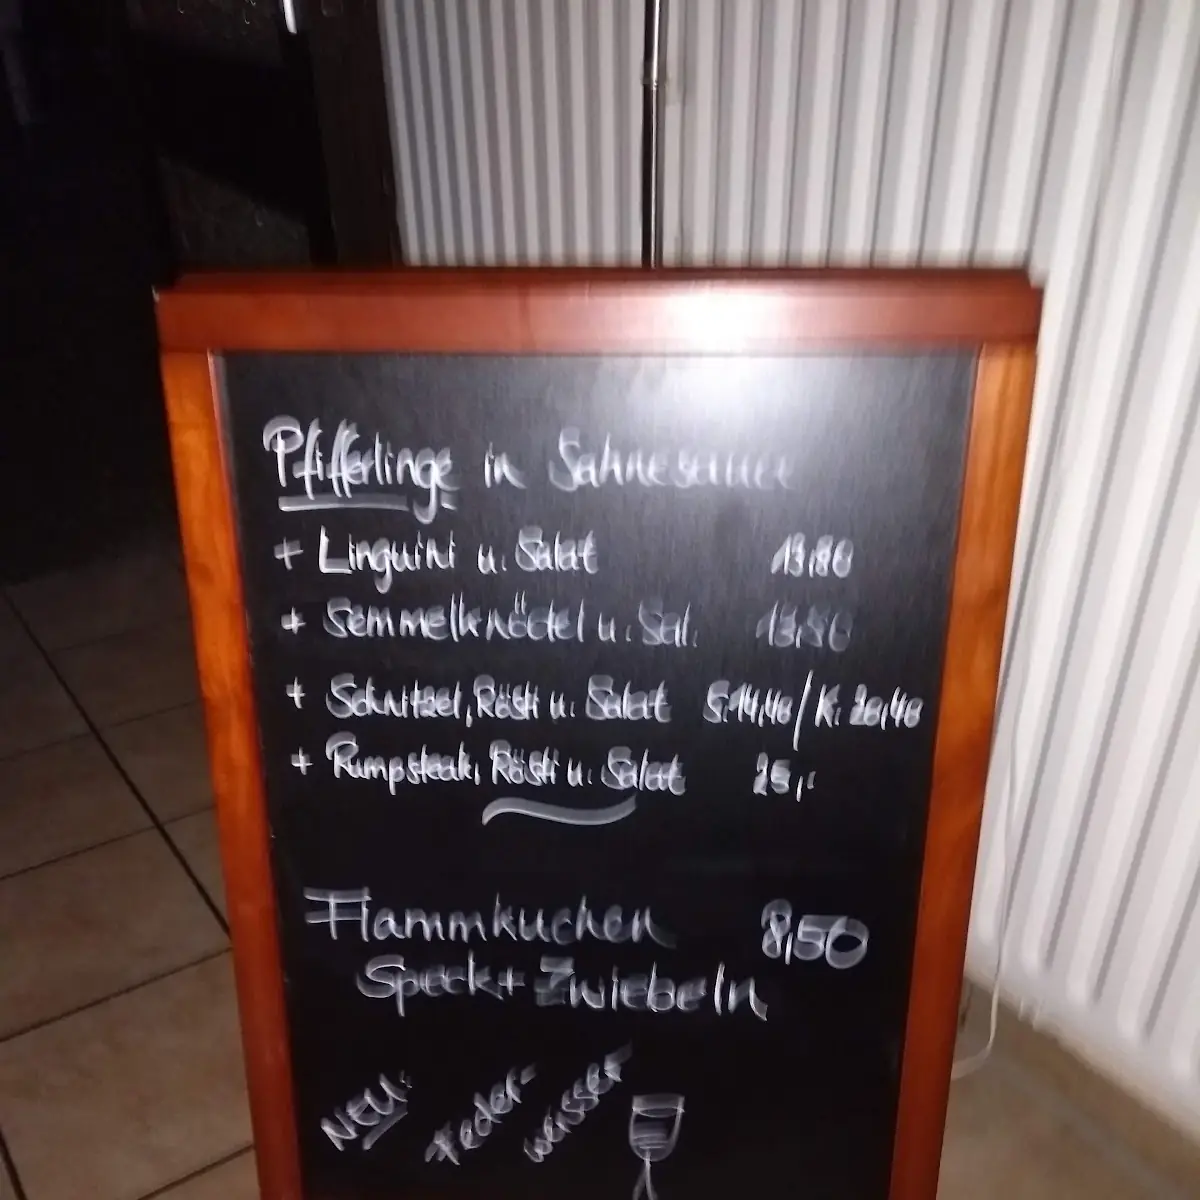 Pfifferlinge in Sahnesauce
+ Linguini u. Salat 13,80
+ Semmelknödel u. Sal. 13,50
+ Schnitzel, Rösti u. Salat S: 14,40 / K: 20,40
+ Rumpsteak, Rösti u. Salat 25,-
Flammkuchen 8,50
Speck + Zwiebeln
NEU: Feder-
weisser